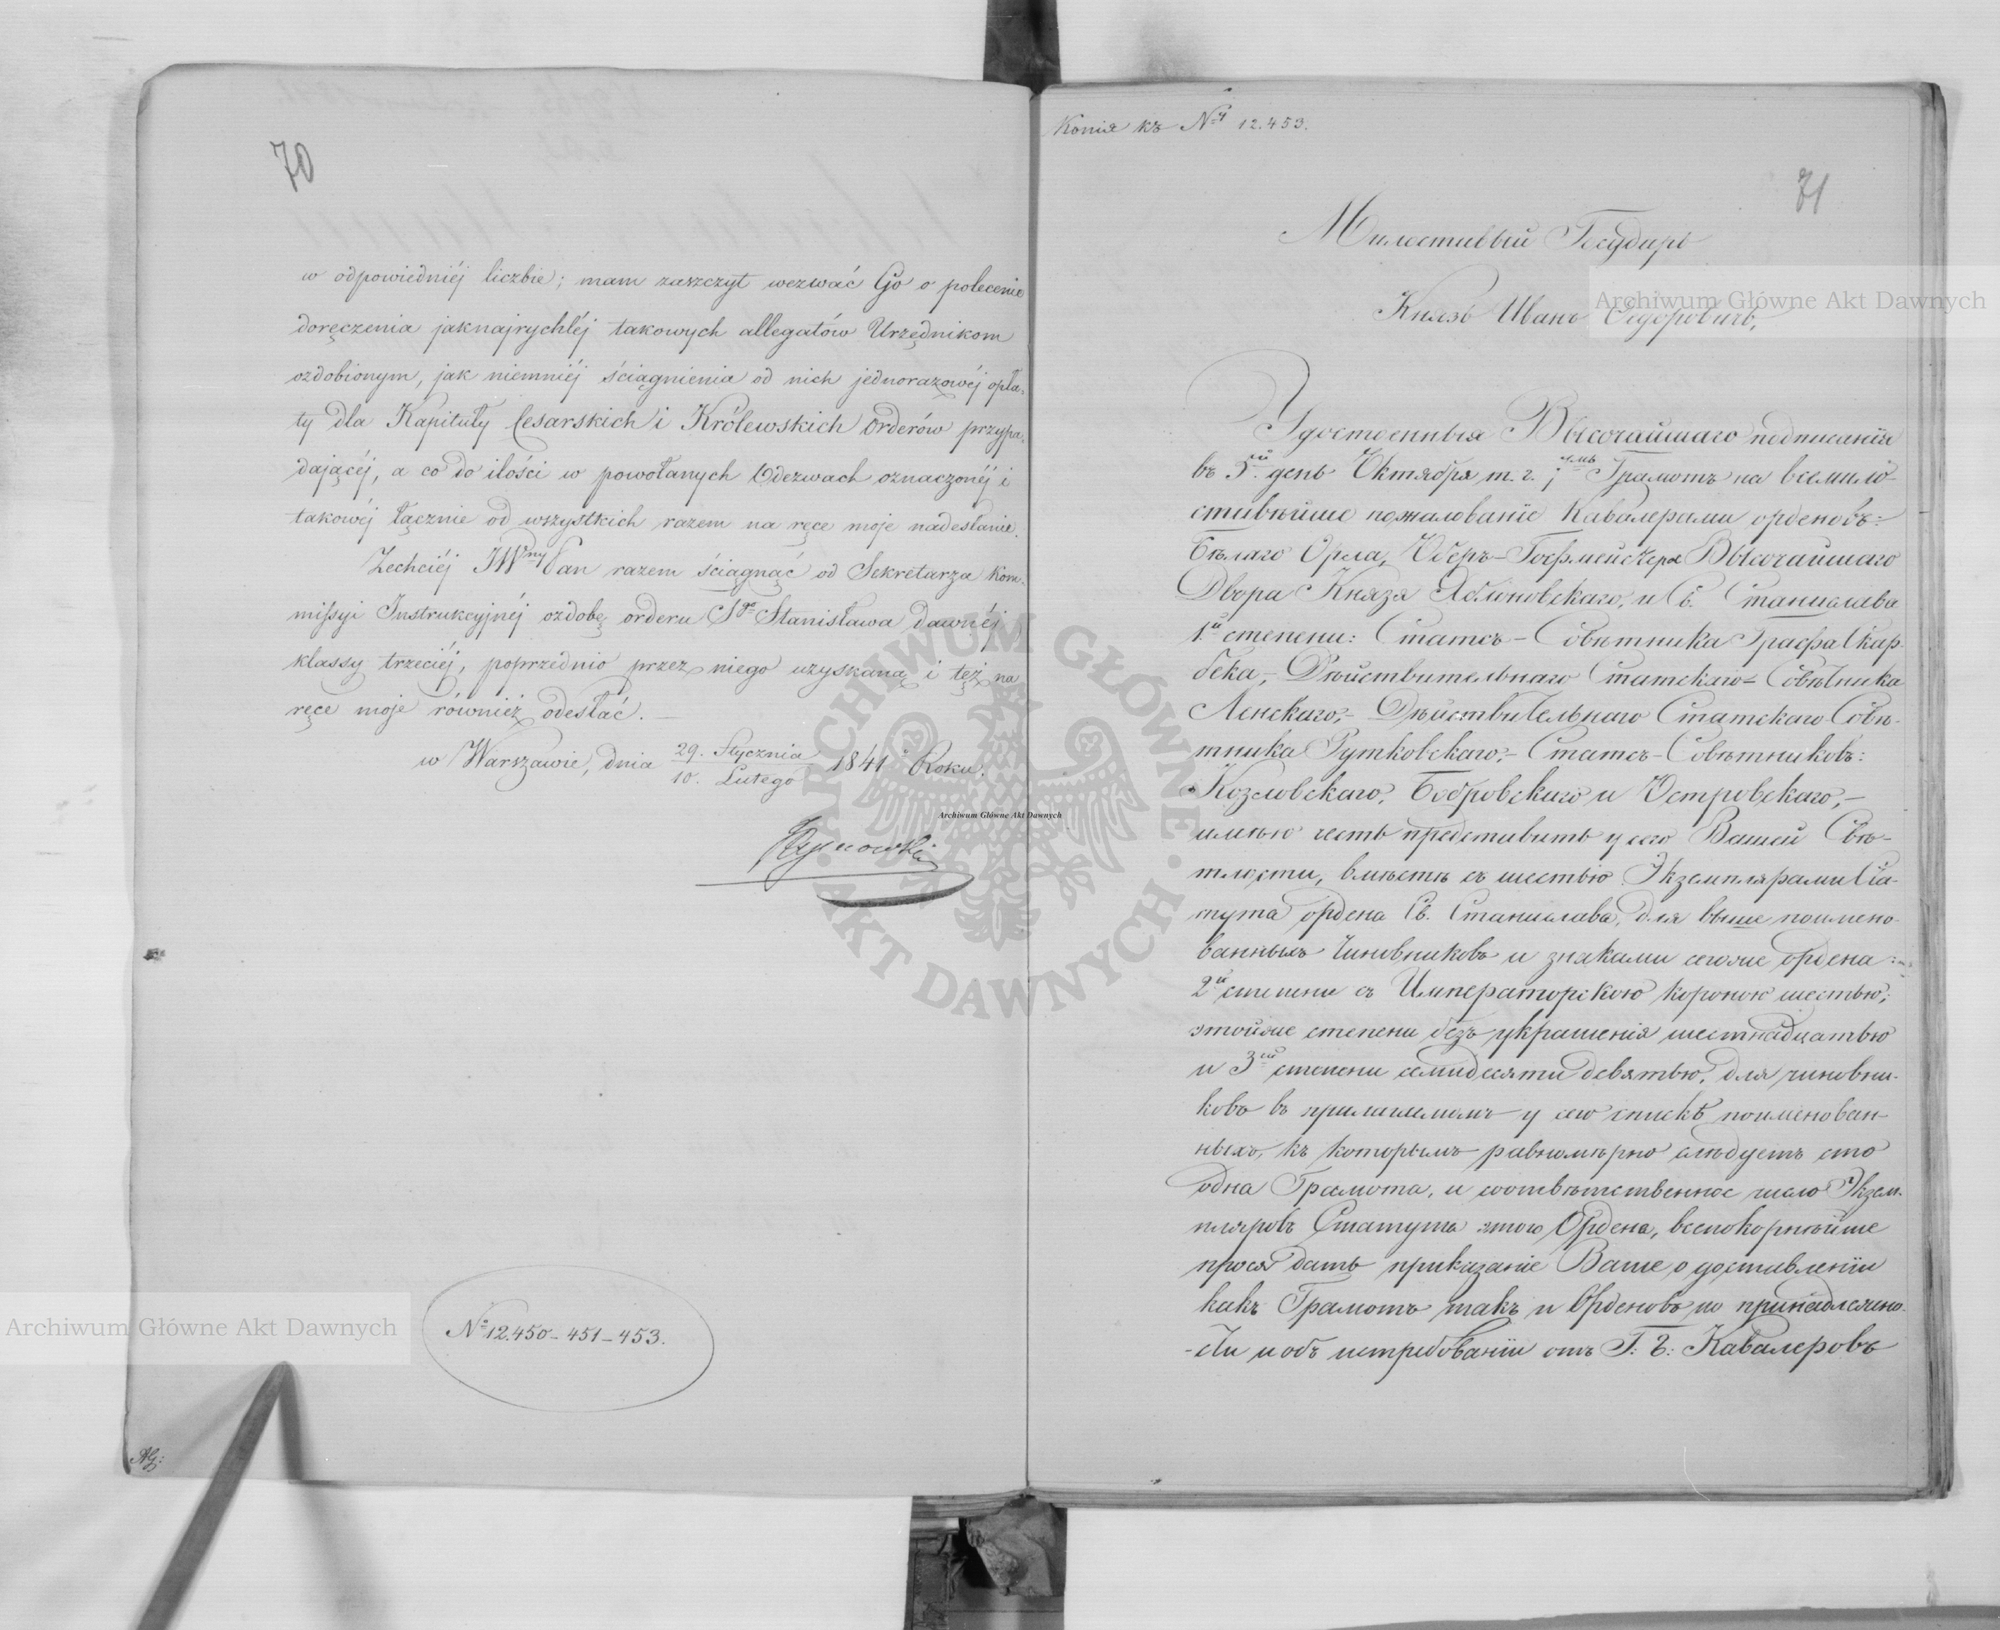 70
w odpowiedniéj liczbie; mam zaszczyt wezwać Go o polecenie
doręczenia jaknajrychléj takowych allegatów Urzędnikom
ozdobionym, jak niemniéj ściągnienia od nich jednorazowéj opła-
ty dla Kapituły Cesarskich i Królewskich Orderów przypa-
dającéj, a co do ilości w powołanych Odezwach oznaczonéj i
takowéj łącznie od wszystkich razem na ręce moje nadesłanie.
Zechciéj JWny Pan razem ściągnąć od Sekretarza Kom-
missyi Instrukcyjnéj ozdobę orderu Sgo Stanisława dawnéj
klassy trzeciéj, poprzednio przez niego uzyskaną i też na
ręce moje również odesłać. —
w Warszawie, dnia 29. Stycznia / 10. Lutego 1841 Roku.
№ 12.450 - 451 - 453.
Копія къ № 12.453.
71
Милостивый Государь
Князь Иванъ Ѳедоровичъ,
Удостоенныя Высочайшаго подписанія
въ 5й день Октября т. г. 7мь Грамотъ на всемило-
стивѣйше пожалованіе Кавалерами орденовъ:
Бѣлаго Орла, Оберъ-Гофмейстера Высочайшаго
Двора Князя Яблоновскаго, и Св. Станислава
1й степени: Статсъ-Совѣтника Графа Скар-
бека, - Дѣйствительнаго Статскаго Совѣтника
Ленскаго, - Дѣйствительнаго Статскаго Совѣ-
тника Рутковскаго, - Статсъ-Совѣтниковъ:
Козловскаго, Бобровскаго и Островскаго, -
имѣю честь представить у сего Вашей Свѣ-
тлости, вмѣстѣ съ шестью Экземплярами Ста-
тута ордена Св. Станислава, для выше поимено-
ванныхъ Чиновниковъ и знаками сегоже ордена:
2й степени съ Императорскою короною шестью,
этойже степени безъ украшенія шестнадцатью
и 3й степени семидесяти девятью, для чиновни-
ковъ въ прилагаемомъ у сего спискѣ поименован-
ныхъ, къ которымъ равномѣрно слѣдуетъ сто
одна Грамота, и соотвѣтственное число Экзем-
пляровъ Статута этого Ордена, всепокорнѣйше
прося дать приказаніе Ваше о доставленіи
какъ Грамотъ такъ и Орденовъ по принадлежно-
сти и объ истребованіи отъ Г. Г. Кавалеровъ
Archiwum Główne Akt Dawnych
Archiwum Główne Akt Dawnych
Archiwum Główne Akt Dawnych
ARCHIWUM GŁÓWNE
AKT DAWNYCH